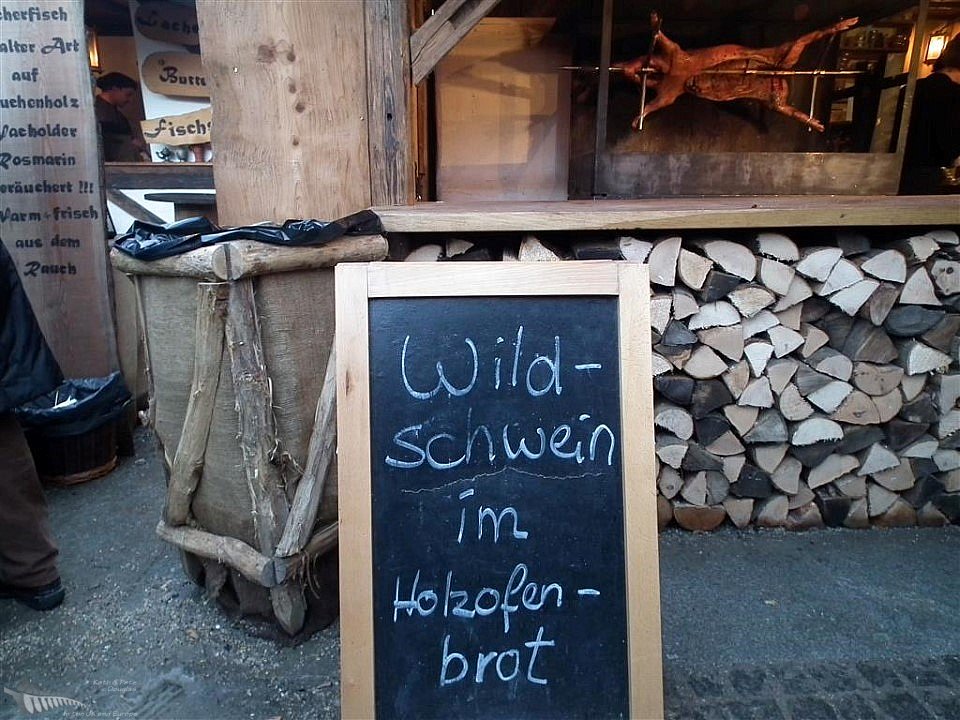 cherfisch
alter Art
auf
uchenholz
Wacholder
Rosmarin
eräuchert !!!
Warm + frisch
aus dem
Rauch
Lachs
Butt
Fischs
Wild-
schwein
im
Holzofen-
brot
Kath & Pete
Douglas
in the UK and Europe